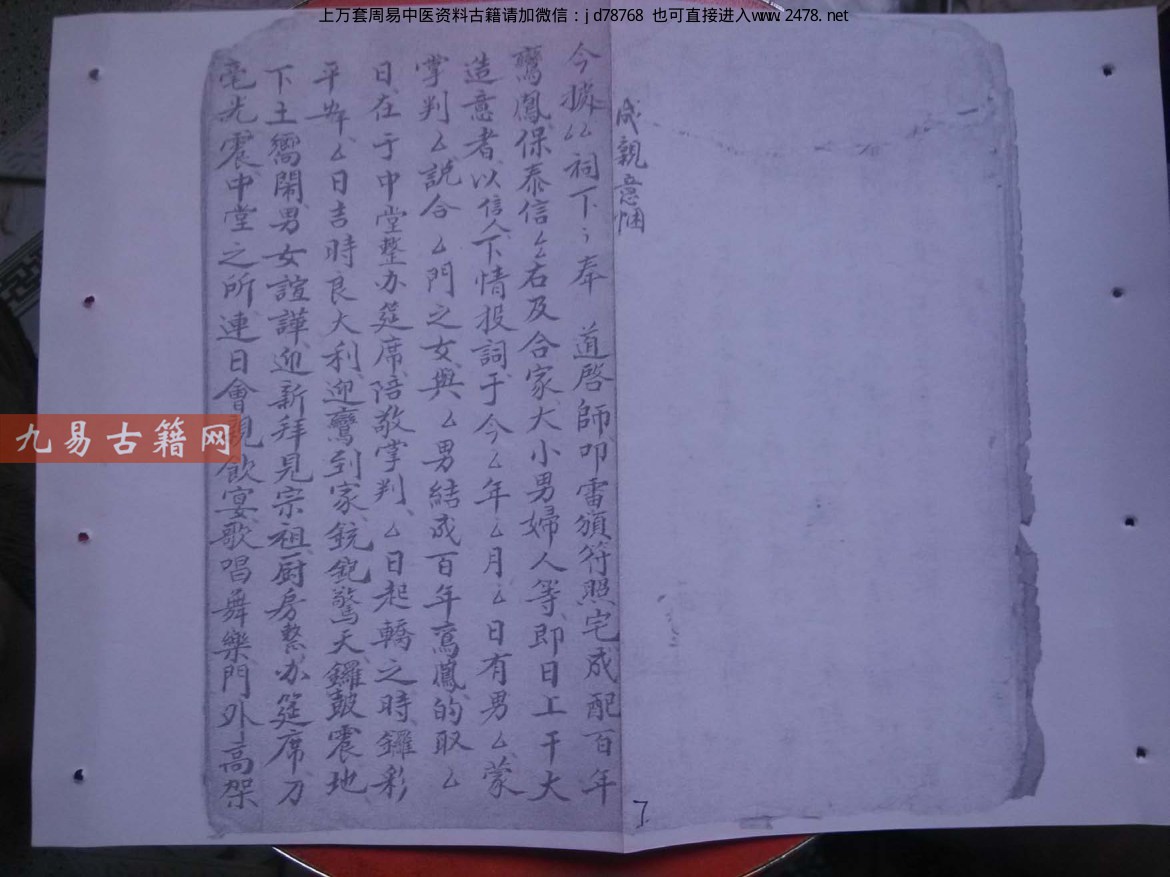 上万套周易中医资料古籍请加微信：jd78768 也可直接进入www.2478.net
成親意悃
今據厶祠下〻奉 道啓師叩雷頒符照宅成配百年
鸞鳳保泰信厶右及合家大小男婦人等即日上干大
造意者以信人下情投詞于今厶年厶月厶日有男厶蒙
掌判厶説合厶門之女與厶男結成百年鸞鳳的取厶
日在于中堂整办筵席陪敬掌判厶日起轎之時鑼彩
平年厶日吉時良大利迎鸞到家銃鉋驚天鑼鼓震地
下土嚮鬧男女諠譁迎新拜見宗祖厨房整办筵席刀
毫光震中堂之所連日會親飲宴歌唱舞樂門外高架
九易古籍网
7.